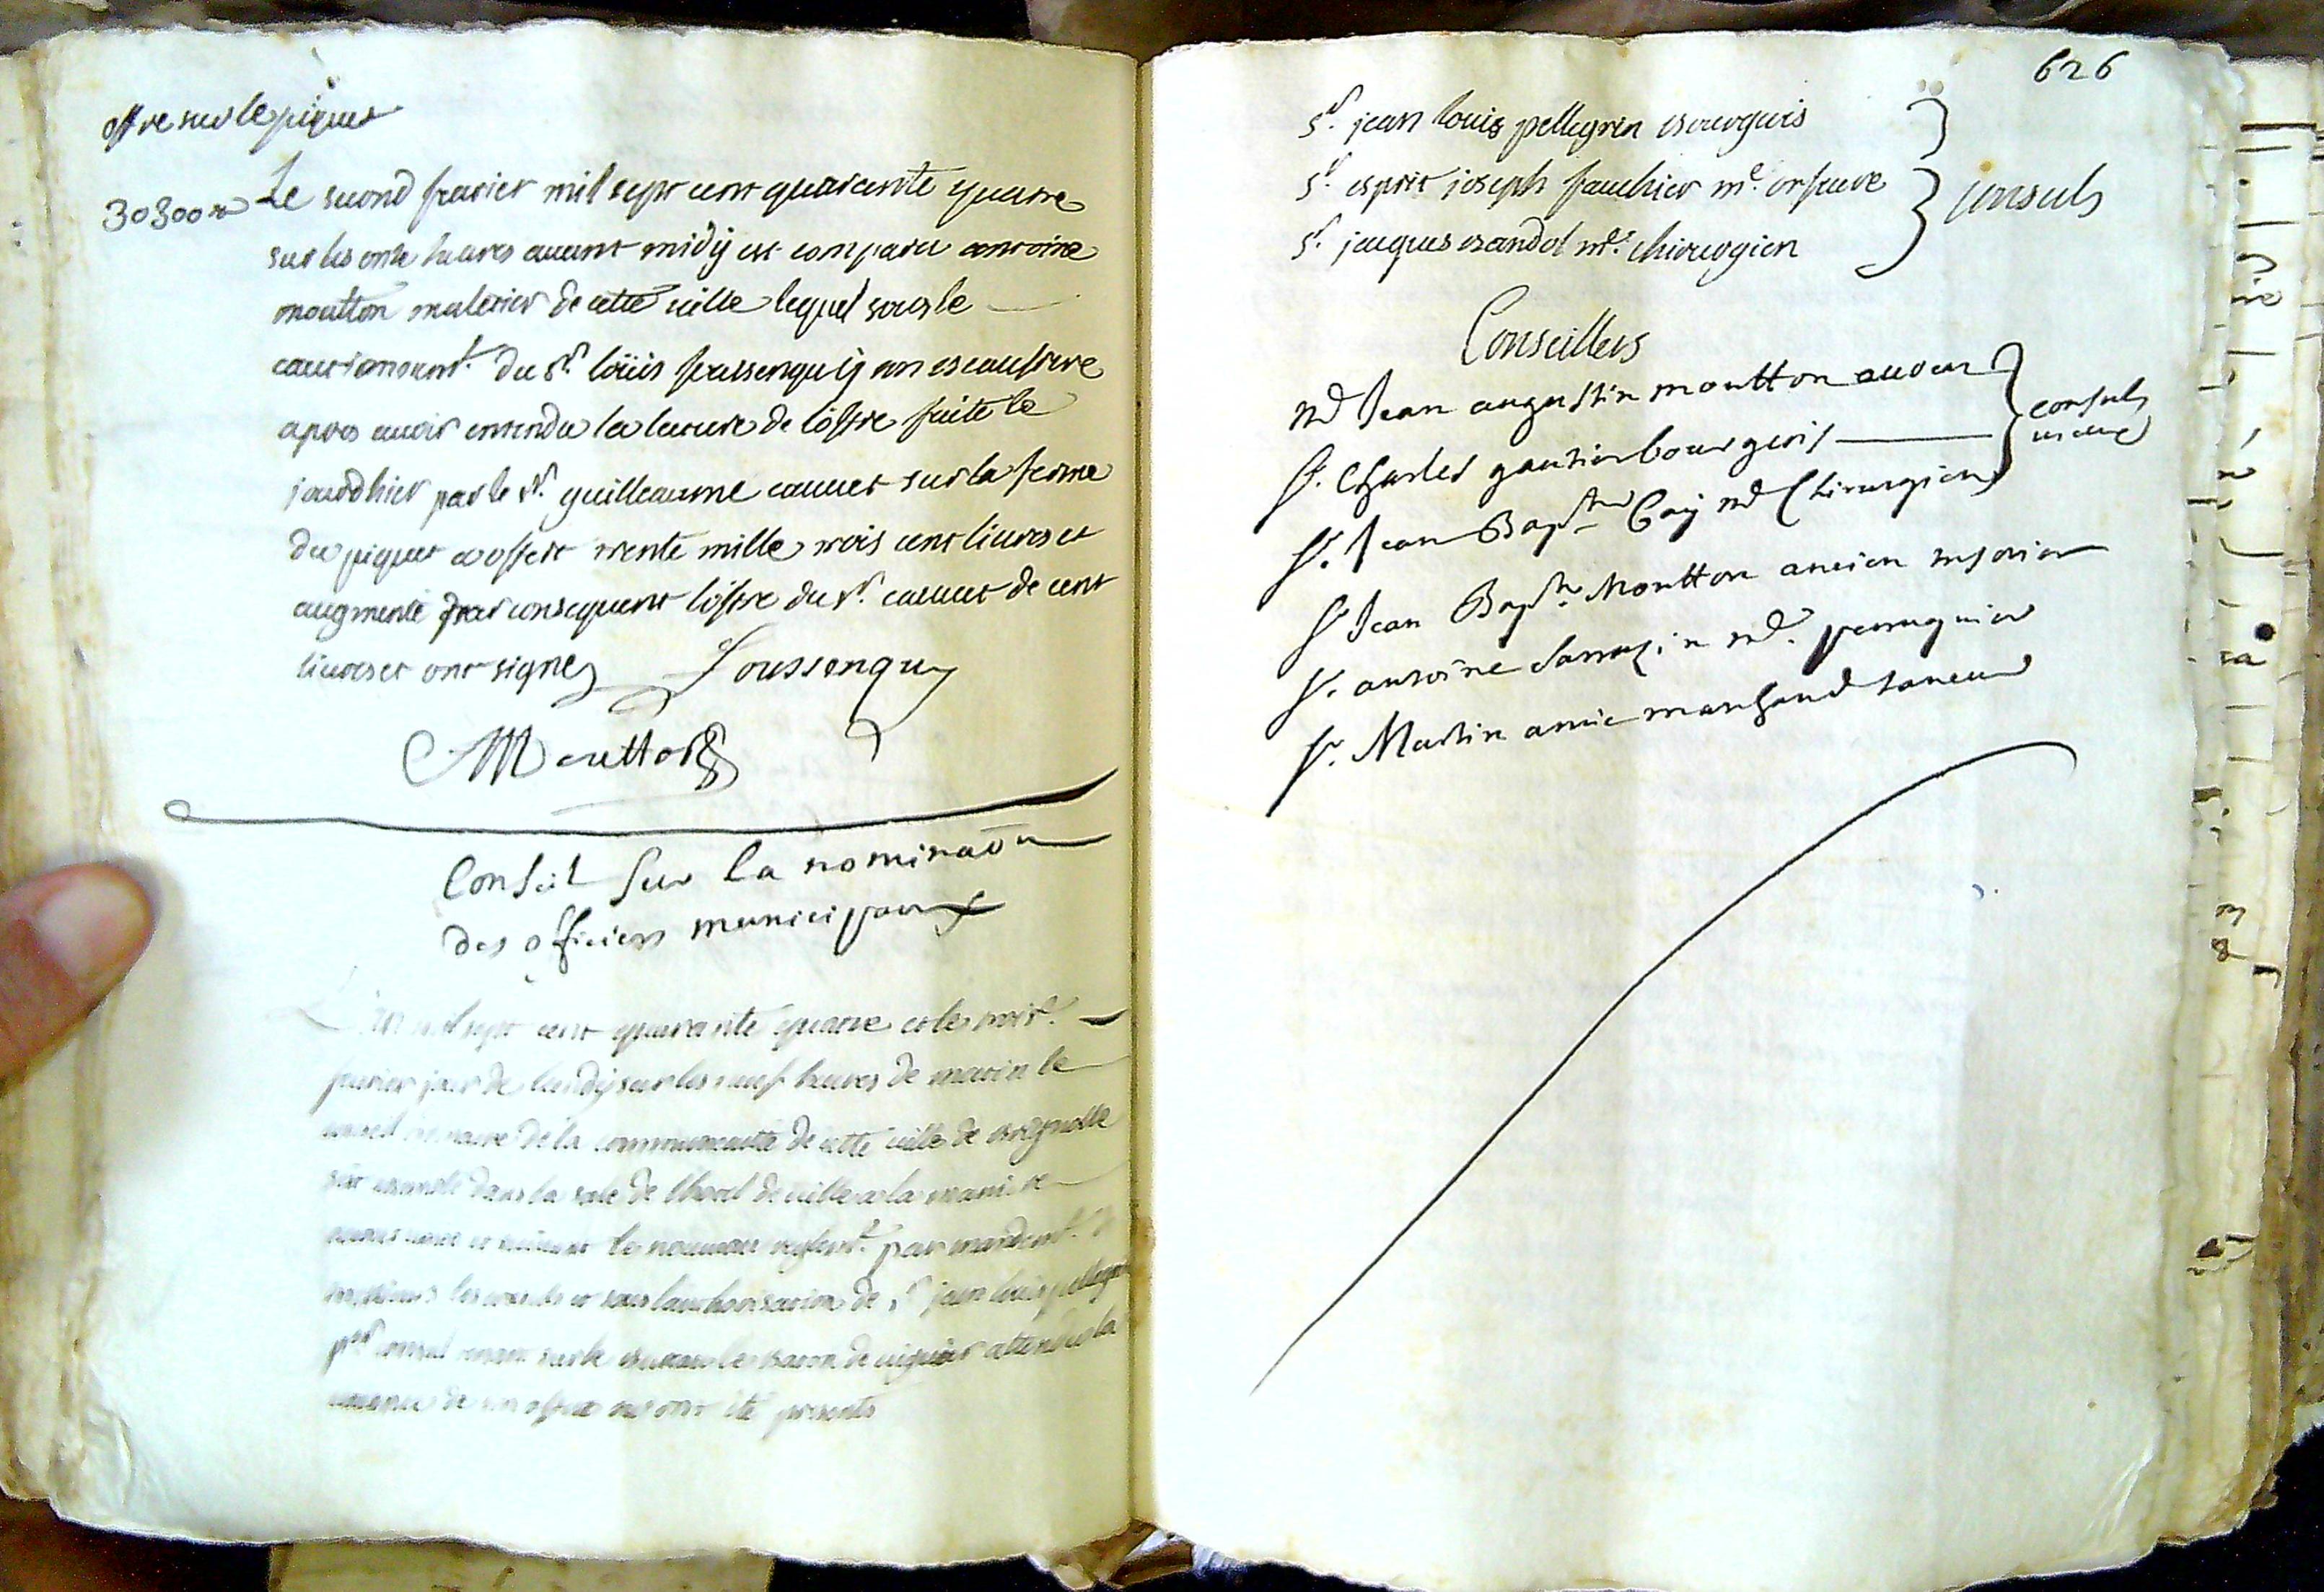 offre sur le piquet
30300 lt
Le second fevrier mil sept cent quarante quatre
sur les onze heures avant midy est comparu antoine
moutton mulletier de cette ville lequel sous le
cautionem.t du s.r loüis foussenquy son
apres avoir entendu la lecture de loffre faite le
jourdhier par le s.r guilleaume cauvet sur la ferme
du piquet a offert trente mille trois cent livres et
augmenté par consequent loffre du s.r cauvet de cent
livres et ont signe
Foussenquy
Moutton
Conseil Sur la nominaōn
des officiers municipaux
L'an mil sept cent quarante quatre et le trois.e
fevrier jour de lundy sur les neuf heures de matin le
conseil de la communauté de cette ville de brignolle
sest assemblé dans la sale de lhotel de ville a la maniere
accoutumée et suivant le nouveau reglem.t par mandem.t
les consuls et sous lauthorisation de s.r jean louis pellegrin
p.er consul le baton de viguier attendu la
de son office ou ont été presents
626
s.r jean louis pellegrin bourgeois
s.r esprit joseph fauchier m.e orfeuvre
s.r jaques brandol m.e chirurgien
consuls
Conseillers
m.e Jean augustin moutton avocat
S.r Charles gautier bourgeois
S.r Jean Bap.te Goy m.e Chirurgien
consuls
vieux
S.r Jean Bap.te Moutton ancien
S.r antoine Sarrazin m.e perruquier
S.r Martin amic marchand taneur